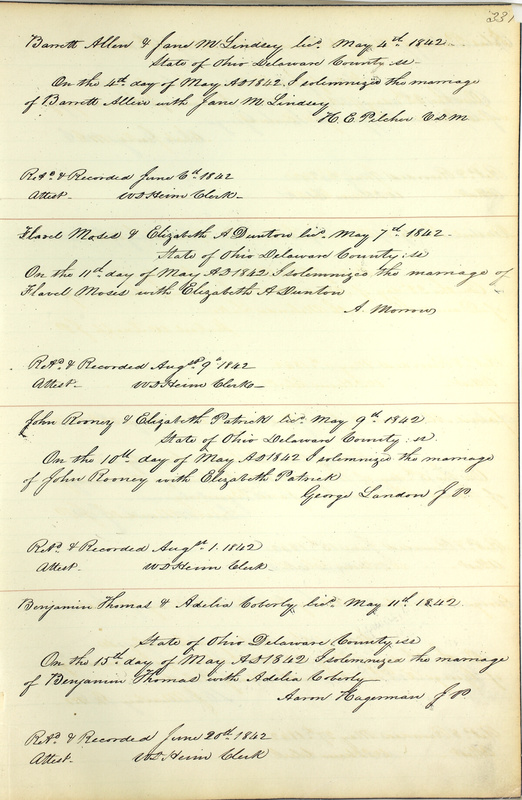 231
Barrett Allen & Jane M Lindsey licd. May 4th. 1842.
State of Ohio Delaware County ss
On the 4th. day of May AD 1842. I solemnized the marriage
of Barrett Allen with Jane M Lindsey
H. E. Pilcher V.D.M
Retd. & Recorded June 6th. 1842
Attest. W D Heim Clerk
Flavel Moses & Elizabeth A Dunton licd. May 7th. 1842.
State of Ohio Delaware County: ss
On the 11th day of May AD 1842 I solemnized the marriage of
Flavel Moses with Elizabeth A Dunton
A. Morrow
Retd. & Recorded Augst. 9th 1842
Attest W D Heim Clerk
John Rooney & Elizabeth Patrick licd. May 9th. 1842
State of Ohio Delaware County: ss.
On the 10th. day of May AD 1842 I solemnized the marriage
of John Rooney with Elizabeth Patrick
George Landon J P.
Retd. & Recorded Augst. 1. 1842
Attest. W D Heim Clerk
Benjamin Thomas & Adelia Coberly licd. May 11th. 1842.
State of Ohio Delaware County: ss
On the 15th. day of May AD 1842 I solemnized the marriage
of Benjamin Thomas with Adelia Coberly
Aaron Hagerman J P.
Retd. & Recorded June 20th. 1842
Attest. W D Heim Clerk